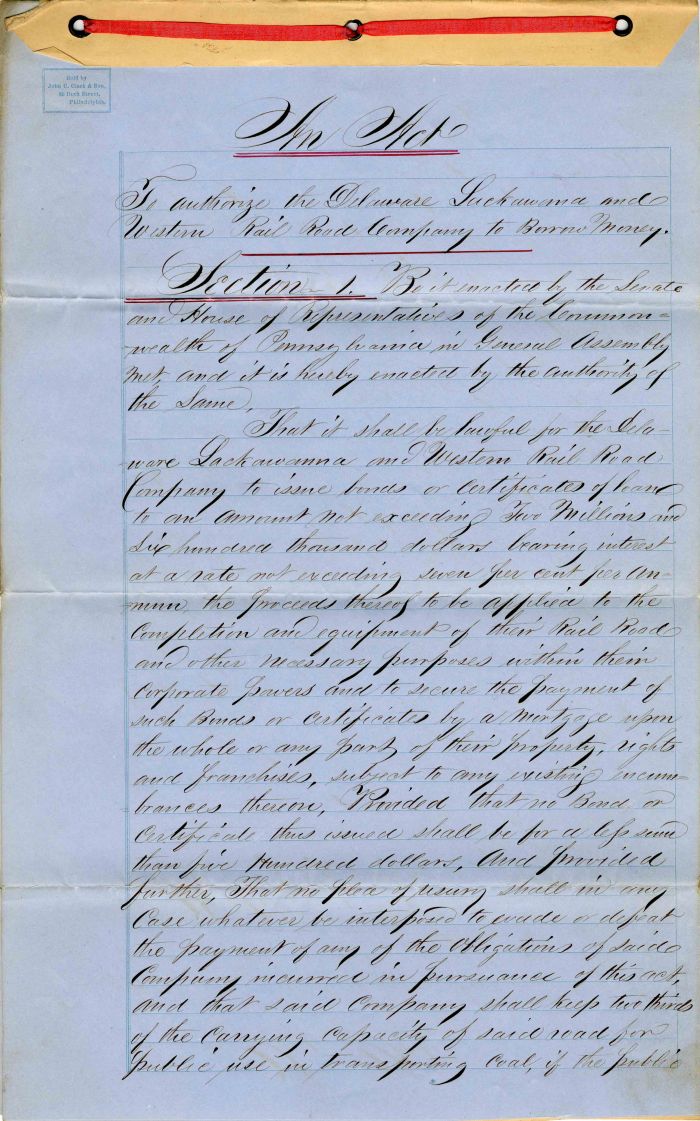 Sold by
John C. Clark & Son,
Dock Street,
Philadelphia.
An Act
To authorize the Delaware Lackawanna and
Western Rail Road Company to Borrow Money.
Section 1. Be it enacted by the Senate
and House of Representatives of the Common=
=wealth of Pennsylvania in General Assembly
met, and it is hereby enacted by the authority of
the Same,
That it shall be lawful for the Dela-
ware Lackawanna and Western Rail Road
Company to issue bonds or certificates of loan
to an amount not exceeding Two Millions and
Six hundred thousand dollars bearing interest
at a rate not exceeding seven per cent per An-
num the proceeds thereof to be applied to the
completion and equipment of their Rail Road
and other necessary purposes within their
corporate powers and to secure the payment of
such Bonds or certificates by a Mortgage upon
the whole or any part of their property, rights
and franchises, subject to any existing incum-
brances thereon, Provided that no Bond or
certificate thus issued shall be for a less sum
than five Hundred dollars, And provided
further, That no plea of usury shall in any
Case whatever be interposed to evade or defeat
the payment of any of the Obligations of said
Company incurred in pursuance of this act,
and that said Company shall keep two thirds
of the Carrying Capacity of said road for
public use in transporting Coal, if the public